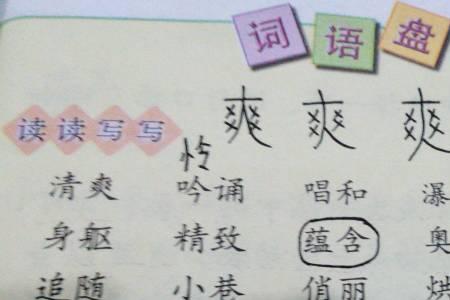 词语盘
爽 爽 爽
读读写写
怜
清爽 吟诵 唱和 瀑
身躯 精致 蕴含 奥
追随 小巷 俏丽 烘